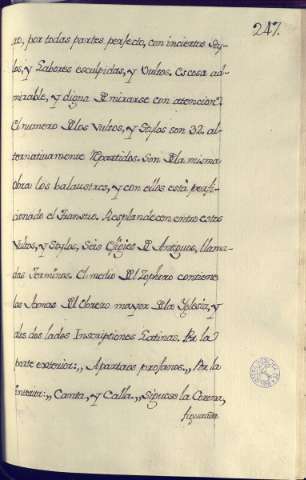 247.
to, por todas partes perfecto, con inciertos Sty-
los, y Labores esculpidas, y Vultos. Es cosa ad-
mirable, y digna de mirarse con atencion.
El numero de los Vultos, y Stylos son 32. al-
ternativamente repartidos. Son de la misma
obra los balaustres, y con ellos està perfi-
cionado el Transitu. Resplandecen entre estos
Vultos, y Stylos, Seis Efigies de Antiguos, llama-
das Terminos. El medio del Zophoro contiene
las Armas del Obrero mayor de la Yglesia, y
a los dos lados Inscriptiones Latinas. Por la
parte exterior:,, Apartaos profanos.,, Por la
interior:,, Canta, y Calla.,, Siguese la Corona,